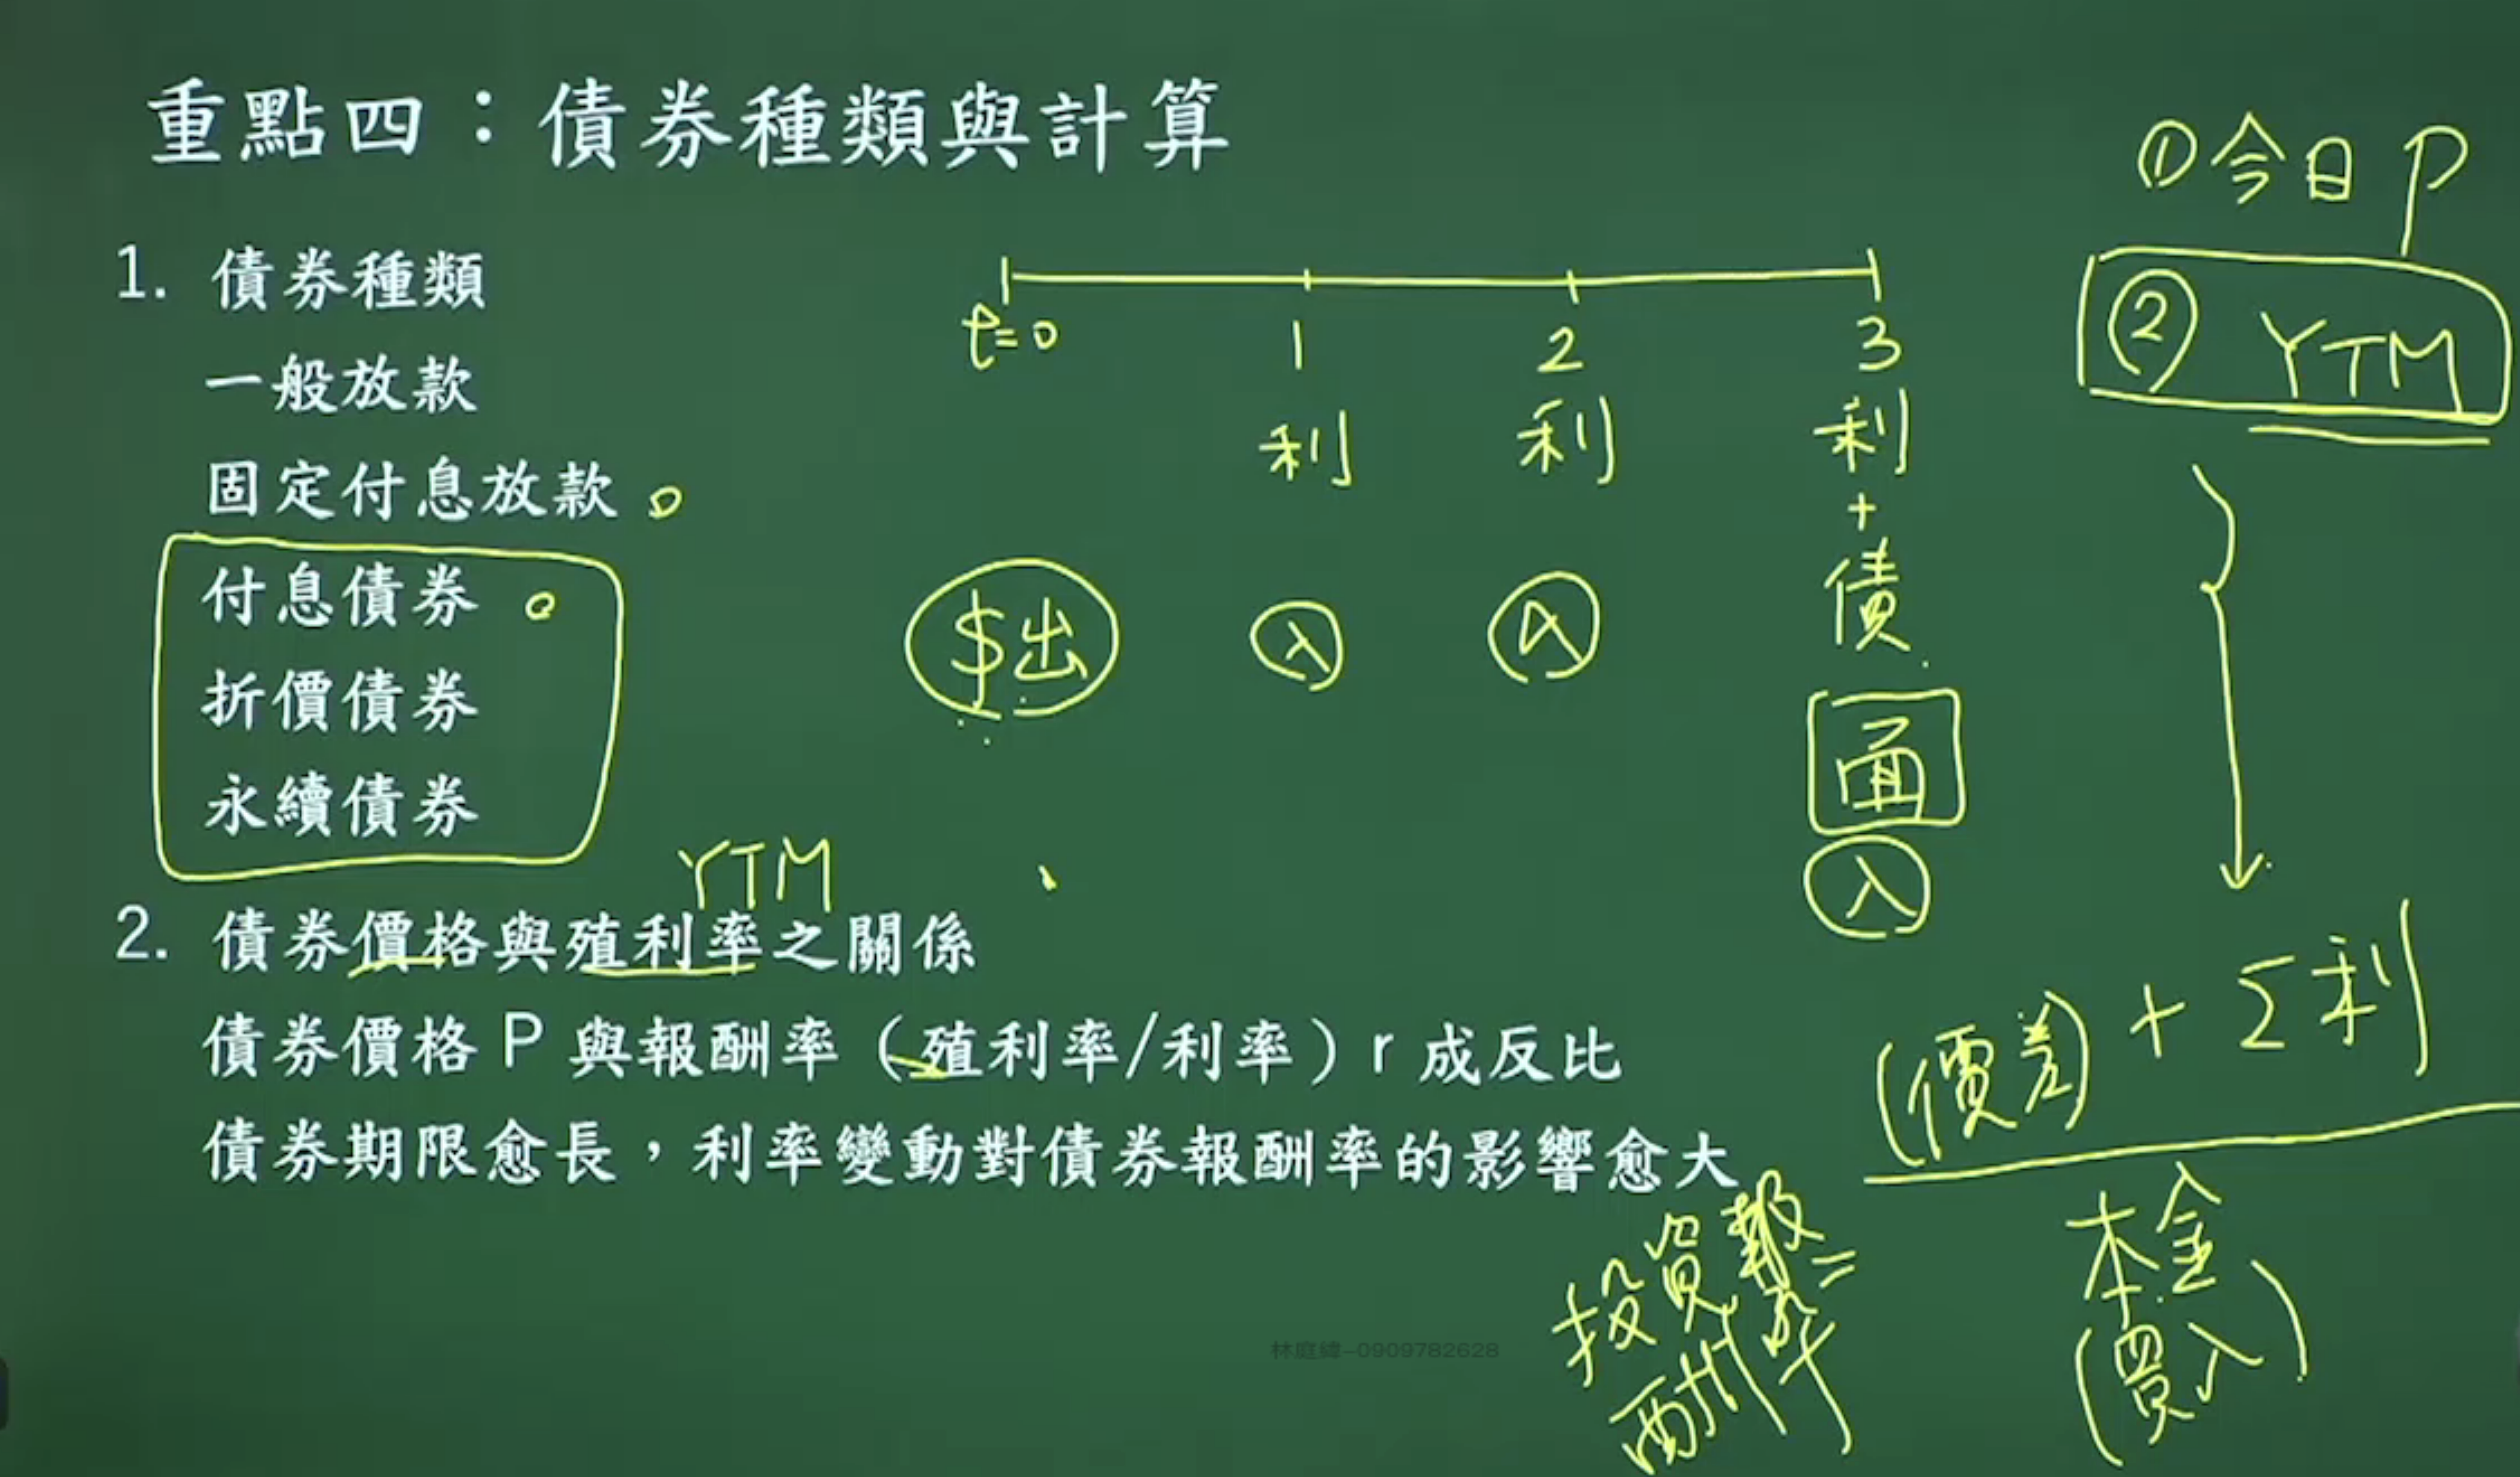 重點四：債券種類與計算
1. 債券種類
一般放款
固定付息放款
付息債券
折價債券
永續債券
YTM
2. 債券價格與殖利率之關係
債券價格 P 與報酬率（殖利率/利率）r 成反比
債券期限愈長，利率變動對債券報酬率的影響愈大
t=0 1 2 3
利 利 利
+
債
$出 入 入
面
入
①今日 P
② YTM
投資報酬率 =
(價差) + Σ利
本金
(買入)
林庭緯-0909782628